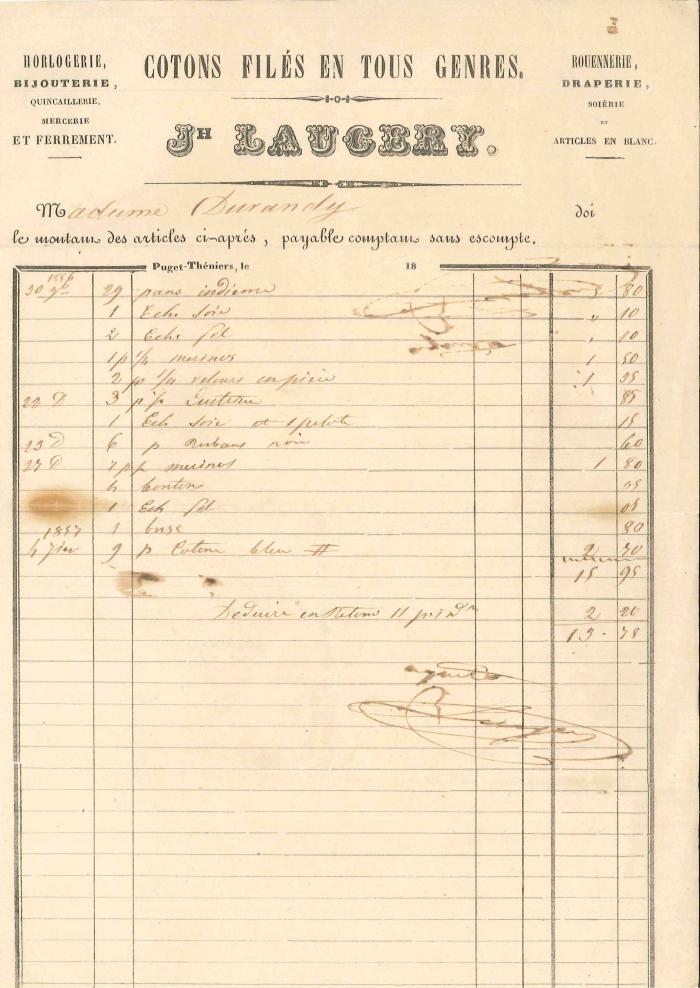 HORLOGERIE,
BIJOUTERIE,
QUINCAILLERIE,
MERCERIE
ET FERREMENT.
COTONS FILÉS EN TOUS GENRES.
JH LAUGERY.
ROUENNERIE,
DRAPERIE,
SOIÈRIE
ET
ARTICLES EN BLANC.
Madame Durandy doi
le montant des articles ci-après, payable comptant sans escompte.
Puget-Théniers, le 18
1856
30 9bre 29 pans indienne 5 80
1 Eche Soie " 10
2 Eche fil " 10
1 p 1/2 merinos 1 50
2 p 1/2 velours 1 25
22 D 3 p 85
1 Ech Soie et 1 pelote 15
23 D 6 p Rubans noir 60
27 D merinos 1 80
boutons
1 Ech fil 05
1857 1 busc 80
4 9 p Cotone bleu # 2 70
15 95
Deduire en Retour 11 p 2 20
13 75